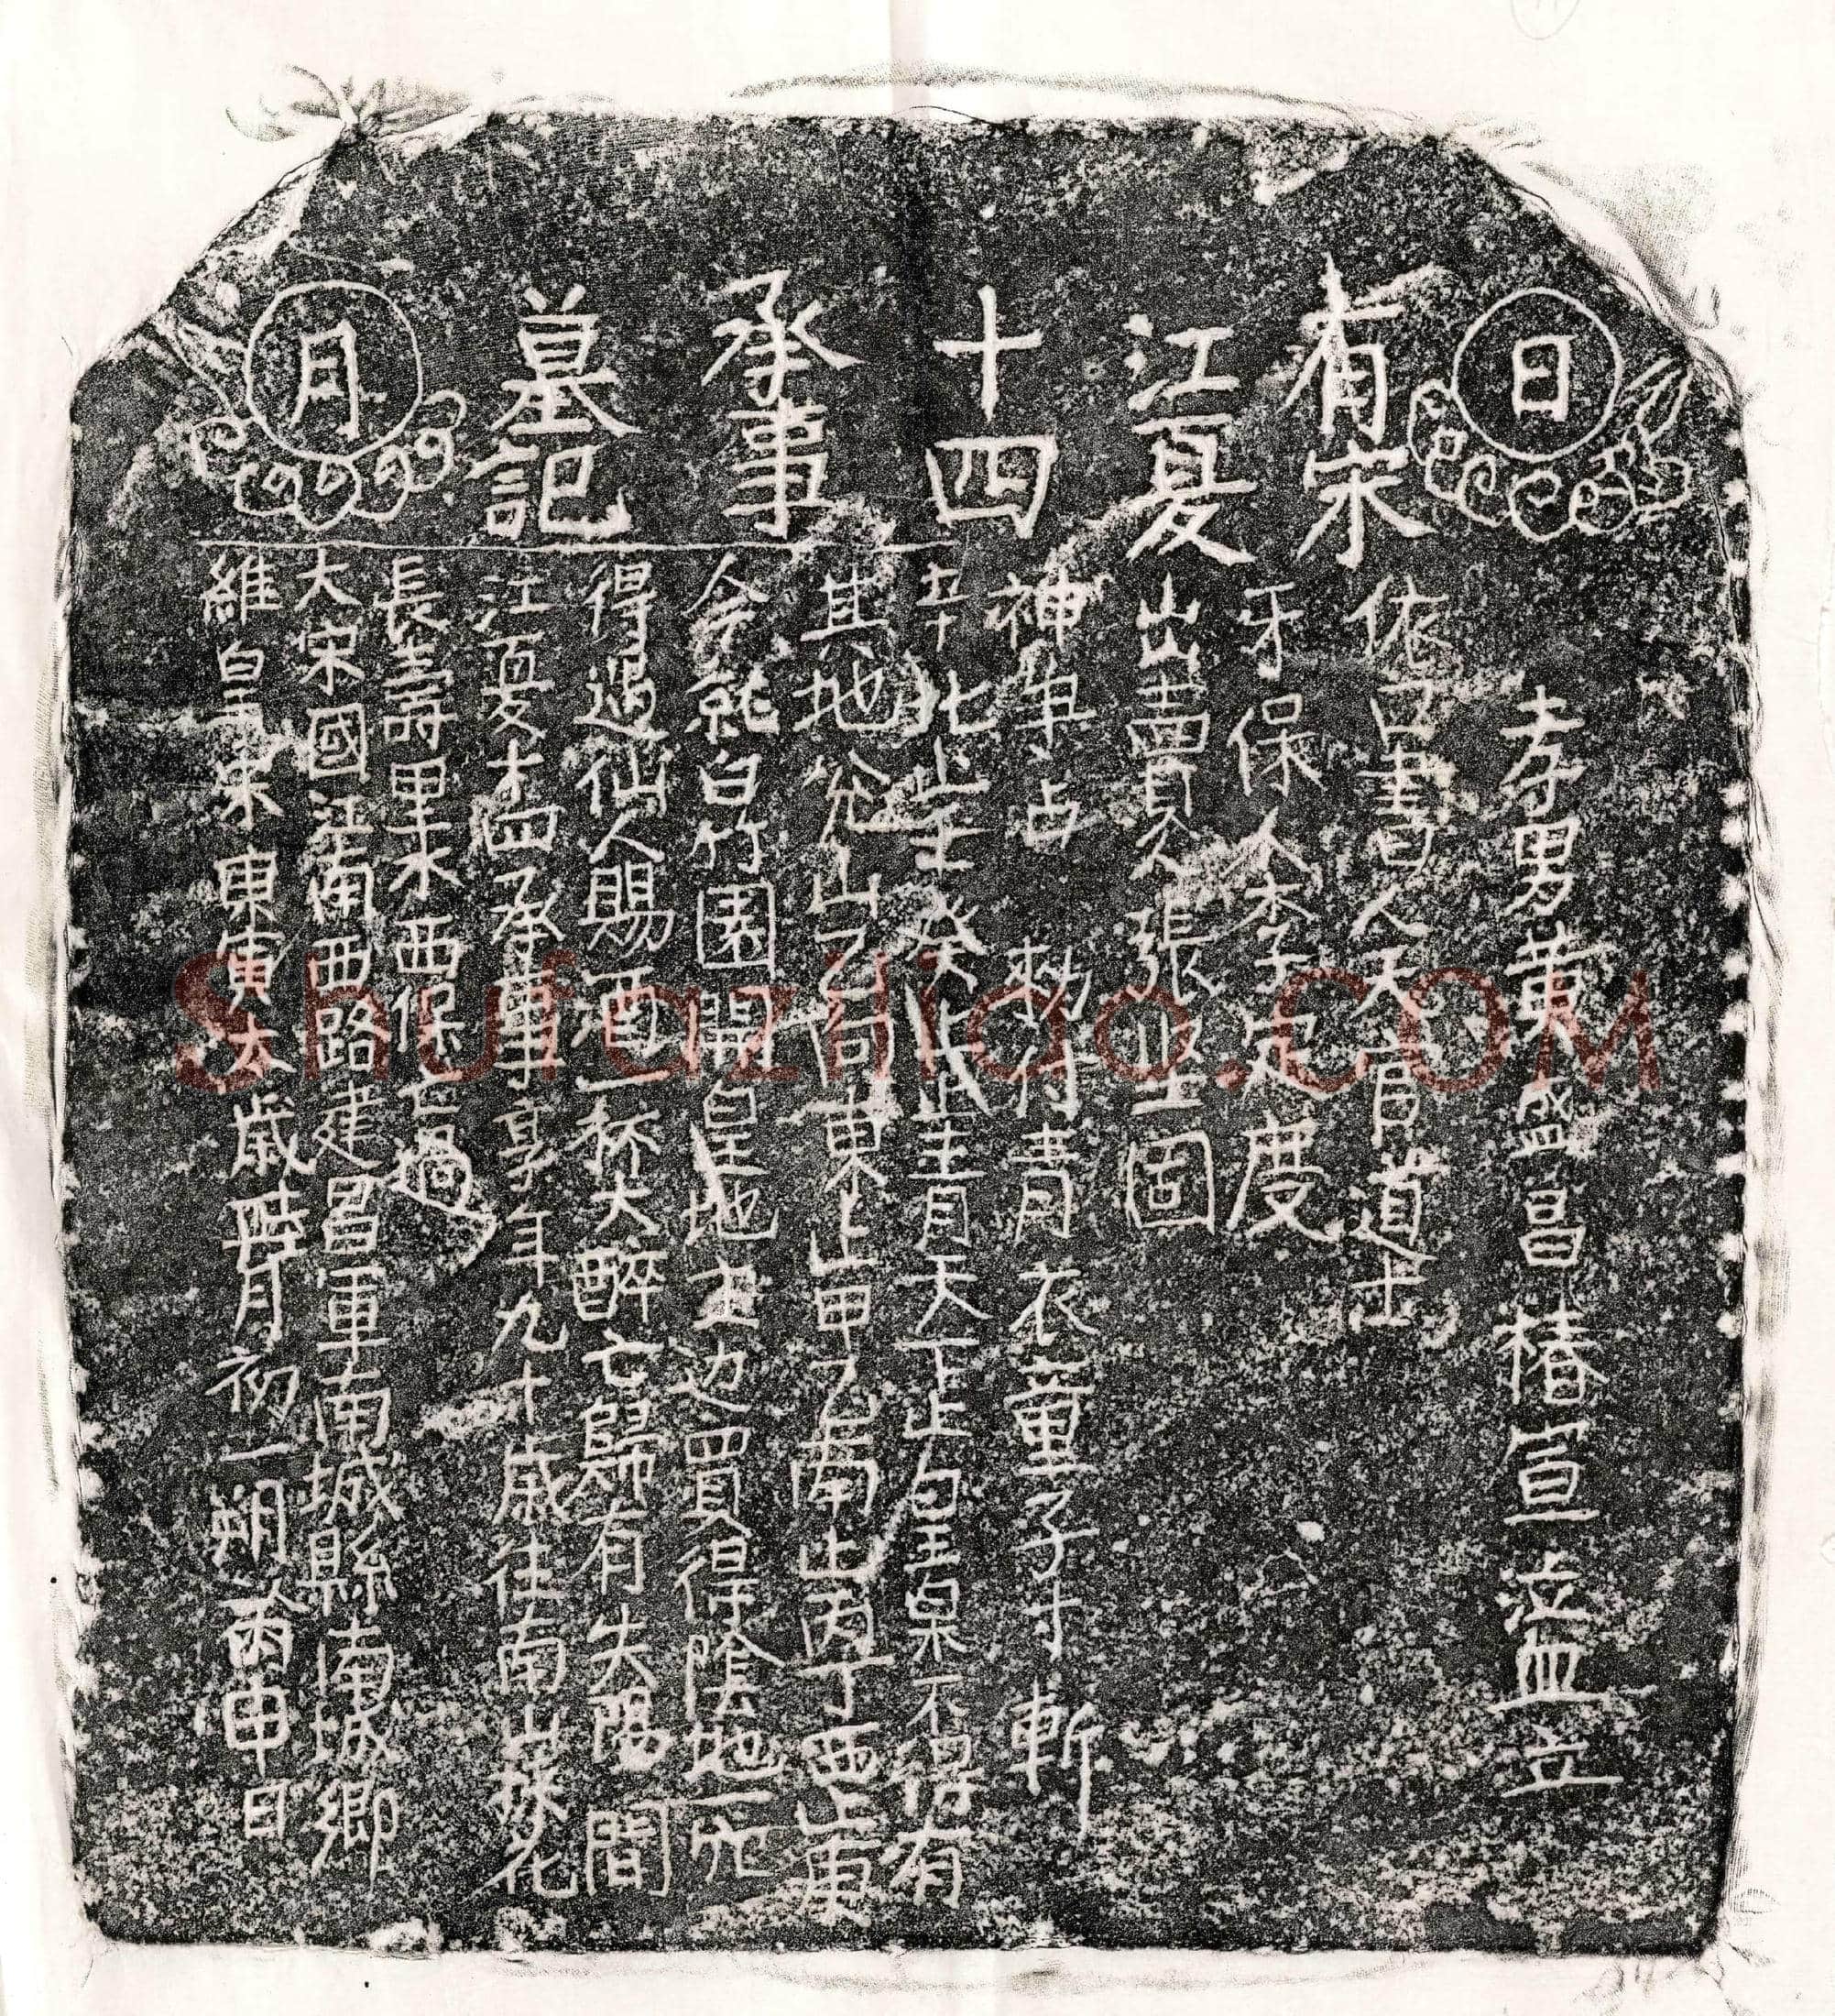 日
有宋
江夏
十四
承事
墓記
月
維皇宋東寅太歲月初一朔丙申日
大宋國江南西路建昌軍南城縣南城鄉
長壽里水西保亡過
江夏十四承事享年九十歲往南山採花
得遇仙人賜酒一杯大醉亡歸有失陽間
今就白竹園開皇地主边買得陰地一穴
其地山乙向東止甲乙南止丙丁西止庚
辛北止壬癸上止青天下止皇泉不得有
神爭占敕付青衣童子寸斬
出賣人張坚固
牙保人李定度
依口書人天官道士
孝男黃盛昌椿宣泣血立
Shufaziliao.COM